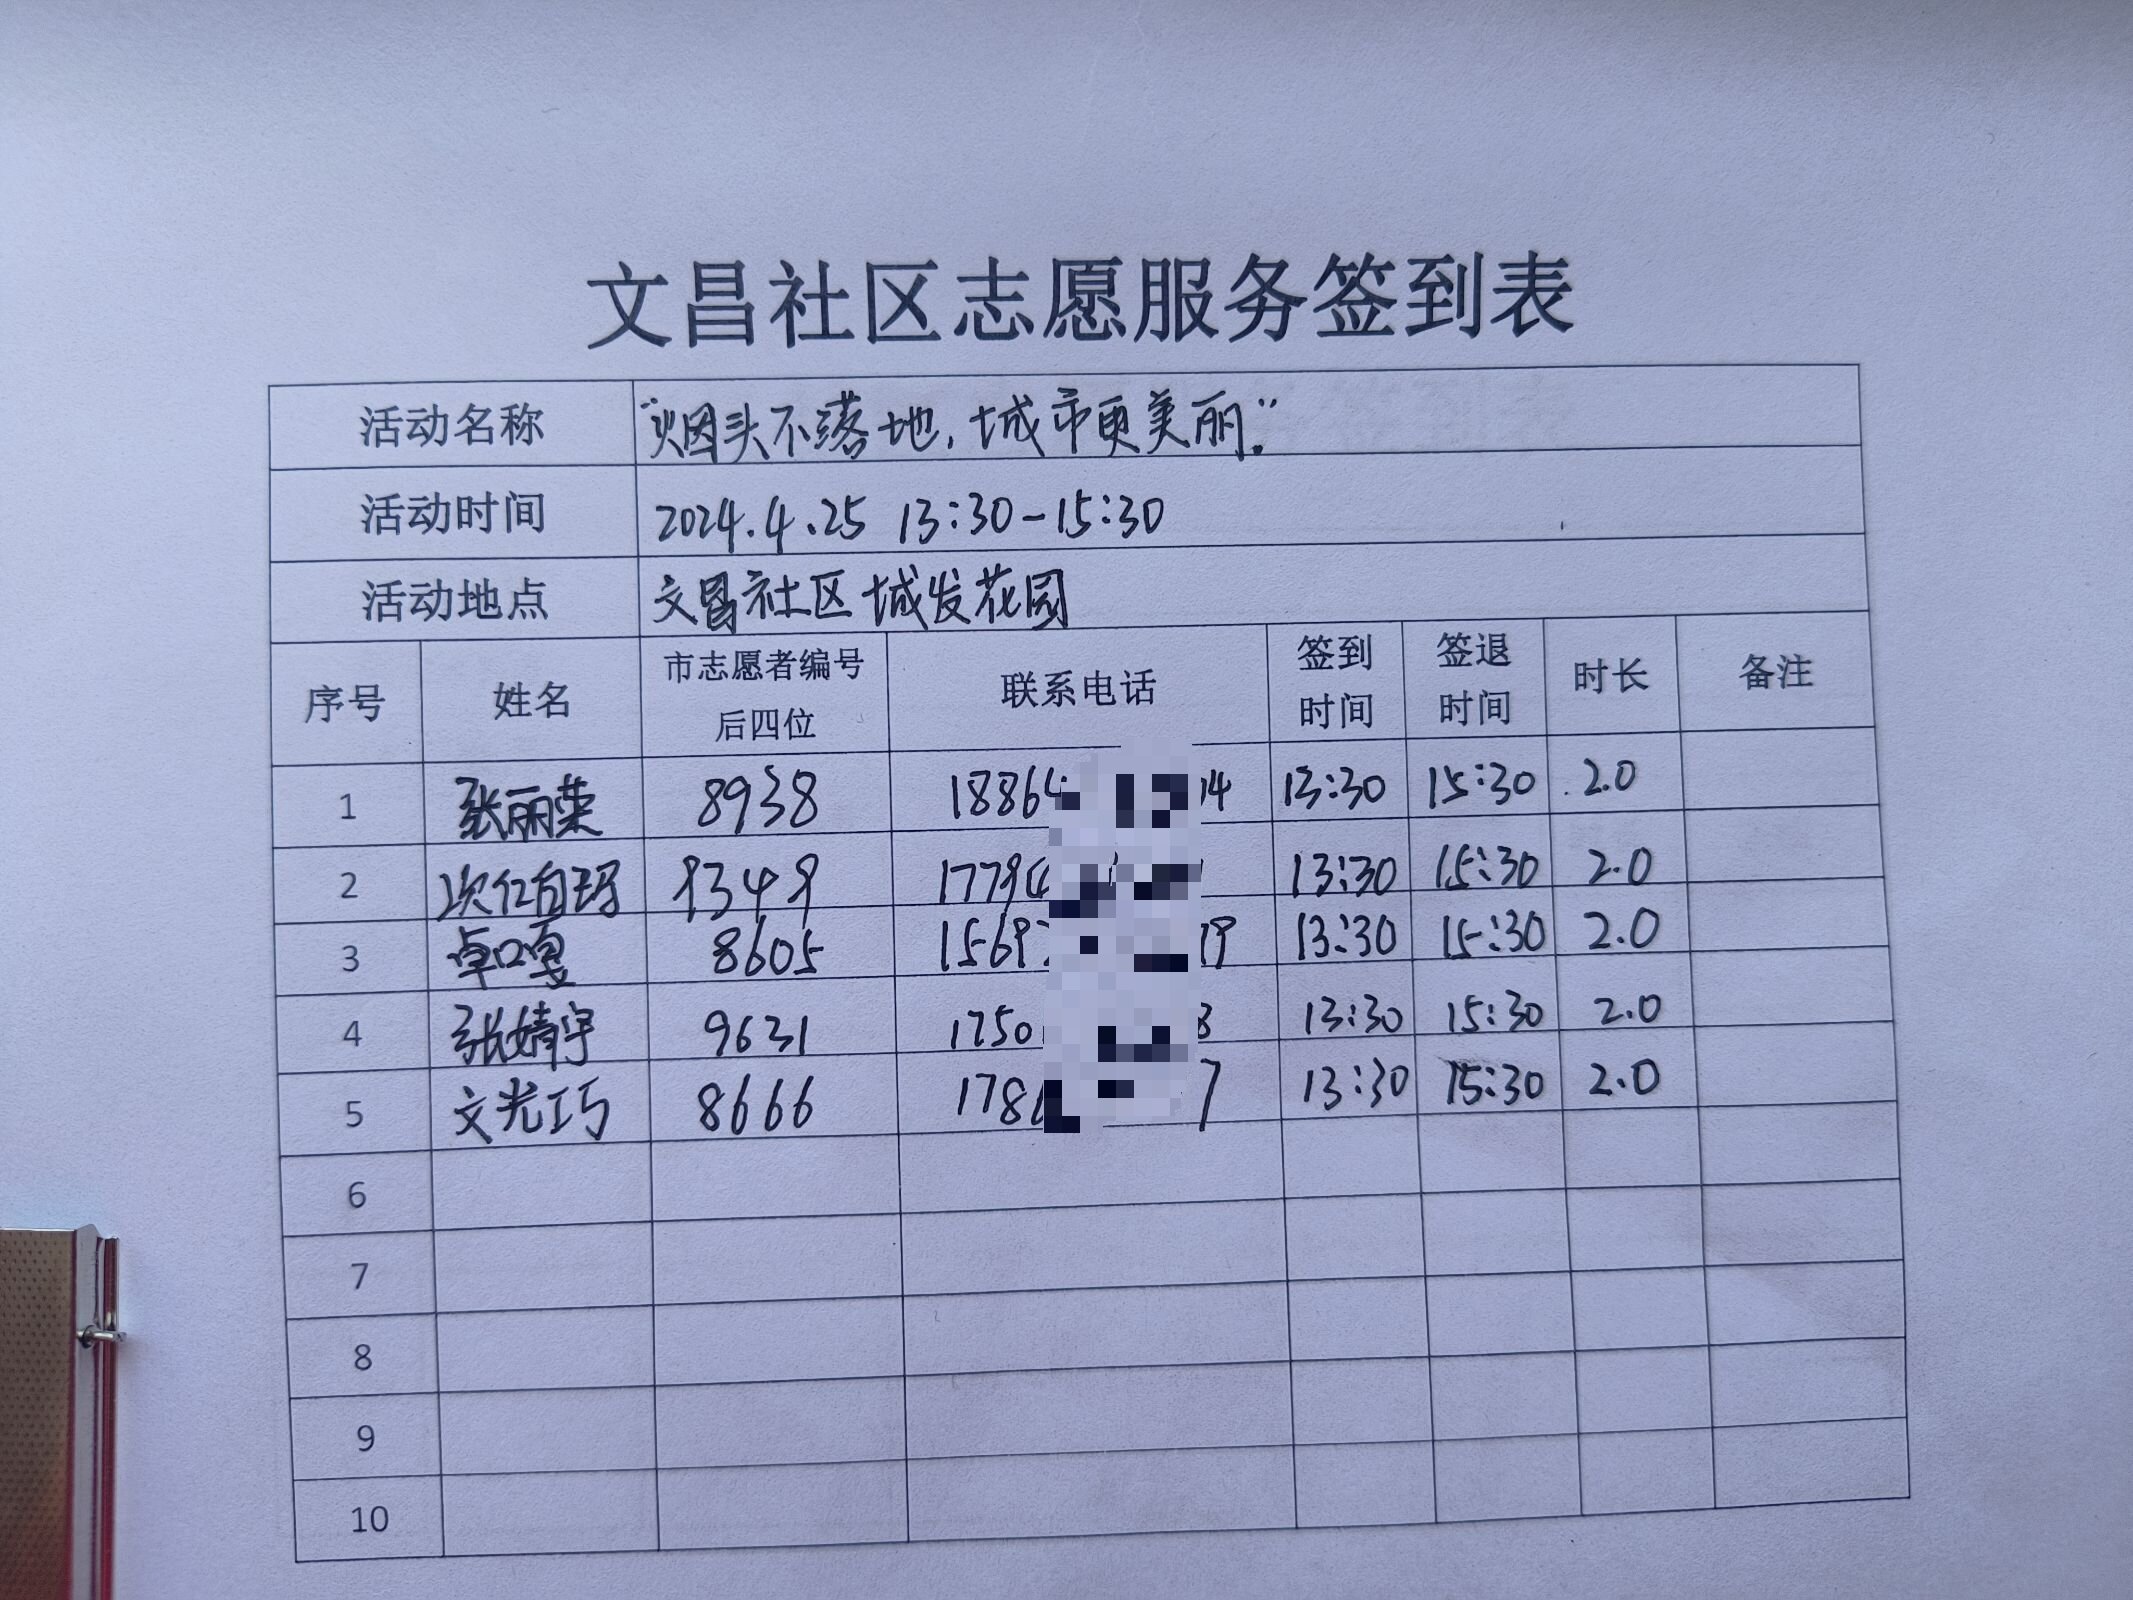 文昌社区志愿服务签到表
活动名称 “烟头不落地,城市更美丽.”
活动时间 2024.4.25 13:30-15:30
活动地点 文昌社区城发花园
序号 姓名 市志愿者编号后四位 联系电话 签到时间 签退时间 时长 备注
1 张丽荣 8938 1886 04 13:30 15:30 2.0
2 次仁白玛 9349 1779 13:30 15:30 2.0
3 卓嘎 8605 1569 79 13:30 15:30 2.0
4 张婧宇 9631 1750 8 13:30 15:30 2.0
5 文光巧 8666 178 7 13:30 15:30 2.0
6
7
8
9
10